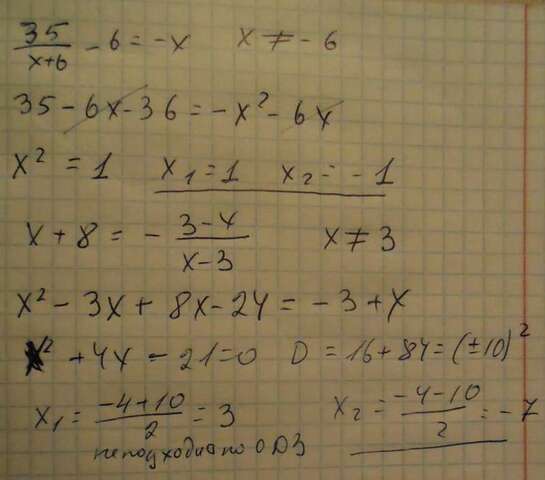 35/(x+6) - 6 = -x    x ≠ -6
35 - 6x - 36 = -x² - 6x
x² = 1    x₁ = 1    x₂ = -1
x + 8 = - (3-x)/(x-3)    x ≠ 3
x² - 3x + 8x - 24 = -3 + x
x² + 4x - 21 = 0    D = 16 + 84 = (±10)²
x₁ = (-4+10)/2 = 3    x₂ = (-4-10)/2 = -7
не подходит по ОДЗ